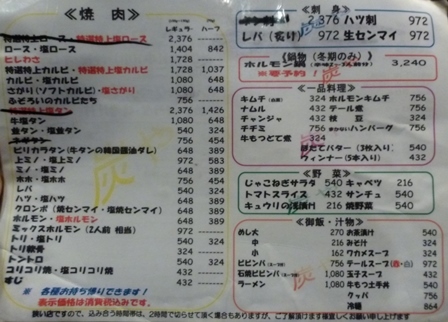 ≪焼 肉≫
レギュラー ハーフ
特選特上ロース・特選特上塩ロース 2,376 -----
ロース・塩ロース 1,404 842
ヒレみさわ 1,728 -----
特選特上カルビ・特選特上塩カルビ 1,728 1,037
カルビ・塩カルビ 1,080 648
さがり(ソフトカルビ)・塩さがり 1,080 648
ふぞろいのカルビたち 756
特選特上塩タン 2,376 1,426
牛塩タン 1,080 648
豚タン・塩豚タン 540 324
756 454
ピリカラタン(牛タンの韓国醤油ダレ) 1,080 648
上ミノ・塩上ミノ 972 583
ミノ・塩ミノ 648 389
ホホ・塩ホホ 756 454
レバ 540 324
ハツ・塩ハツ 648 389
クロンボ(焼センマイ・塩焼センマイ) 648 389
ホルモン・塩ホルモン 648 389
ミックスホルモン(2人前 相当) 972 -----
トリ・塩トリ 540 324
トリ軟骨 324
トントロ 540 324
コリコリ焼・塩コリコリ焼 432
すじ 432
※ 各種お持ち帰りできます!
表示価格は消費税込みです。
≪刺 身≫
2,376 ハツ刺 972
レバ(炙り) 972 生センマイ 972
≪鍋物(冬期のみ)≫
ホルモン鍋 3,240
※要予約!
≪一品料理≫
キムチ 324 ホルモンキムチ 756
ナムル 432 テール煮 756
チャンジャ 432 枝 豆 324
チヂミ 756 ハンバーグ 756
牛もつどて煮 324
ほたてバター(3枚入り) 540
ウィンナー(5本入り) 432
≪野 菜≫
じゃこねぎサラダ 540 キャベツ 216
トマトスライス 432 サンチュ 540
キュウリの浅漬け 216 焼野菜 540
≪御飯・汁物≫
めし大 270 お茶漬け 540
中 216 みそ汁 324
小 162 ワカメスープ 324
ビビンバ 756 テールスープ(赤・白) 972
石焼ビビンバ 1,080 玉子スープ 432
ラーメン 1,080 牛もつ土手丼 540
クッパ 756
冷麺 864
狭い店ですので、込み合う時間帯は、2時間で切らせて頂く場合もありますが、ご了解頂けます様宜しくお願い致します。